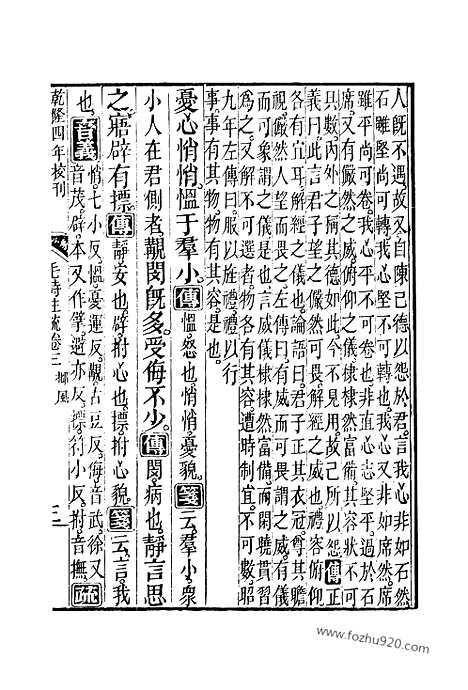 人旣不遇故又自陳己德以怨於君言我心非如石然
石雖堅尚可轉我心堅不可轉也我心又非如席然席
雖平尚可卷我心平不可卷也非直心志堅平過於石
席又有儼然之威俯仰之儀棣棣然富備其容狀不可
只數內外之稱其德如此今不見用故己所以怨傳正
義曰此言君子望之儼然可畏解經之威也禮容俯仰
各有宜耳解經之儀也論語曰君子正其衣冠尊其瞻
視儼然人望而畏之左傳曰有威而可畏謂之威有儀
而可象謂之儀是也言威儀棣棣然富備而閑曉貫習
爲之又解不可選者物各有其容遭時制宜不可數昭
九年左傳曰服以旌禮禮以行
事事有其物物有其容是也
憂心悄悄慍于羣小傳慍怒也悄悄憂貌箋云羣小衆
小人在君側者覯閔旣多受侮不少傳閔病也靜言思
之寤辟有摽傳靜安也辟拊心也摽拊心貌箋云言我
也音義悄七小反慍憂運反覯古豆反侮音武徐又
音茂辟本又作擘避亦反摽符小反拊音撫疏
乾隆四年校刊
毛詩注疏卷三 邶風
www.fozhu920.com